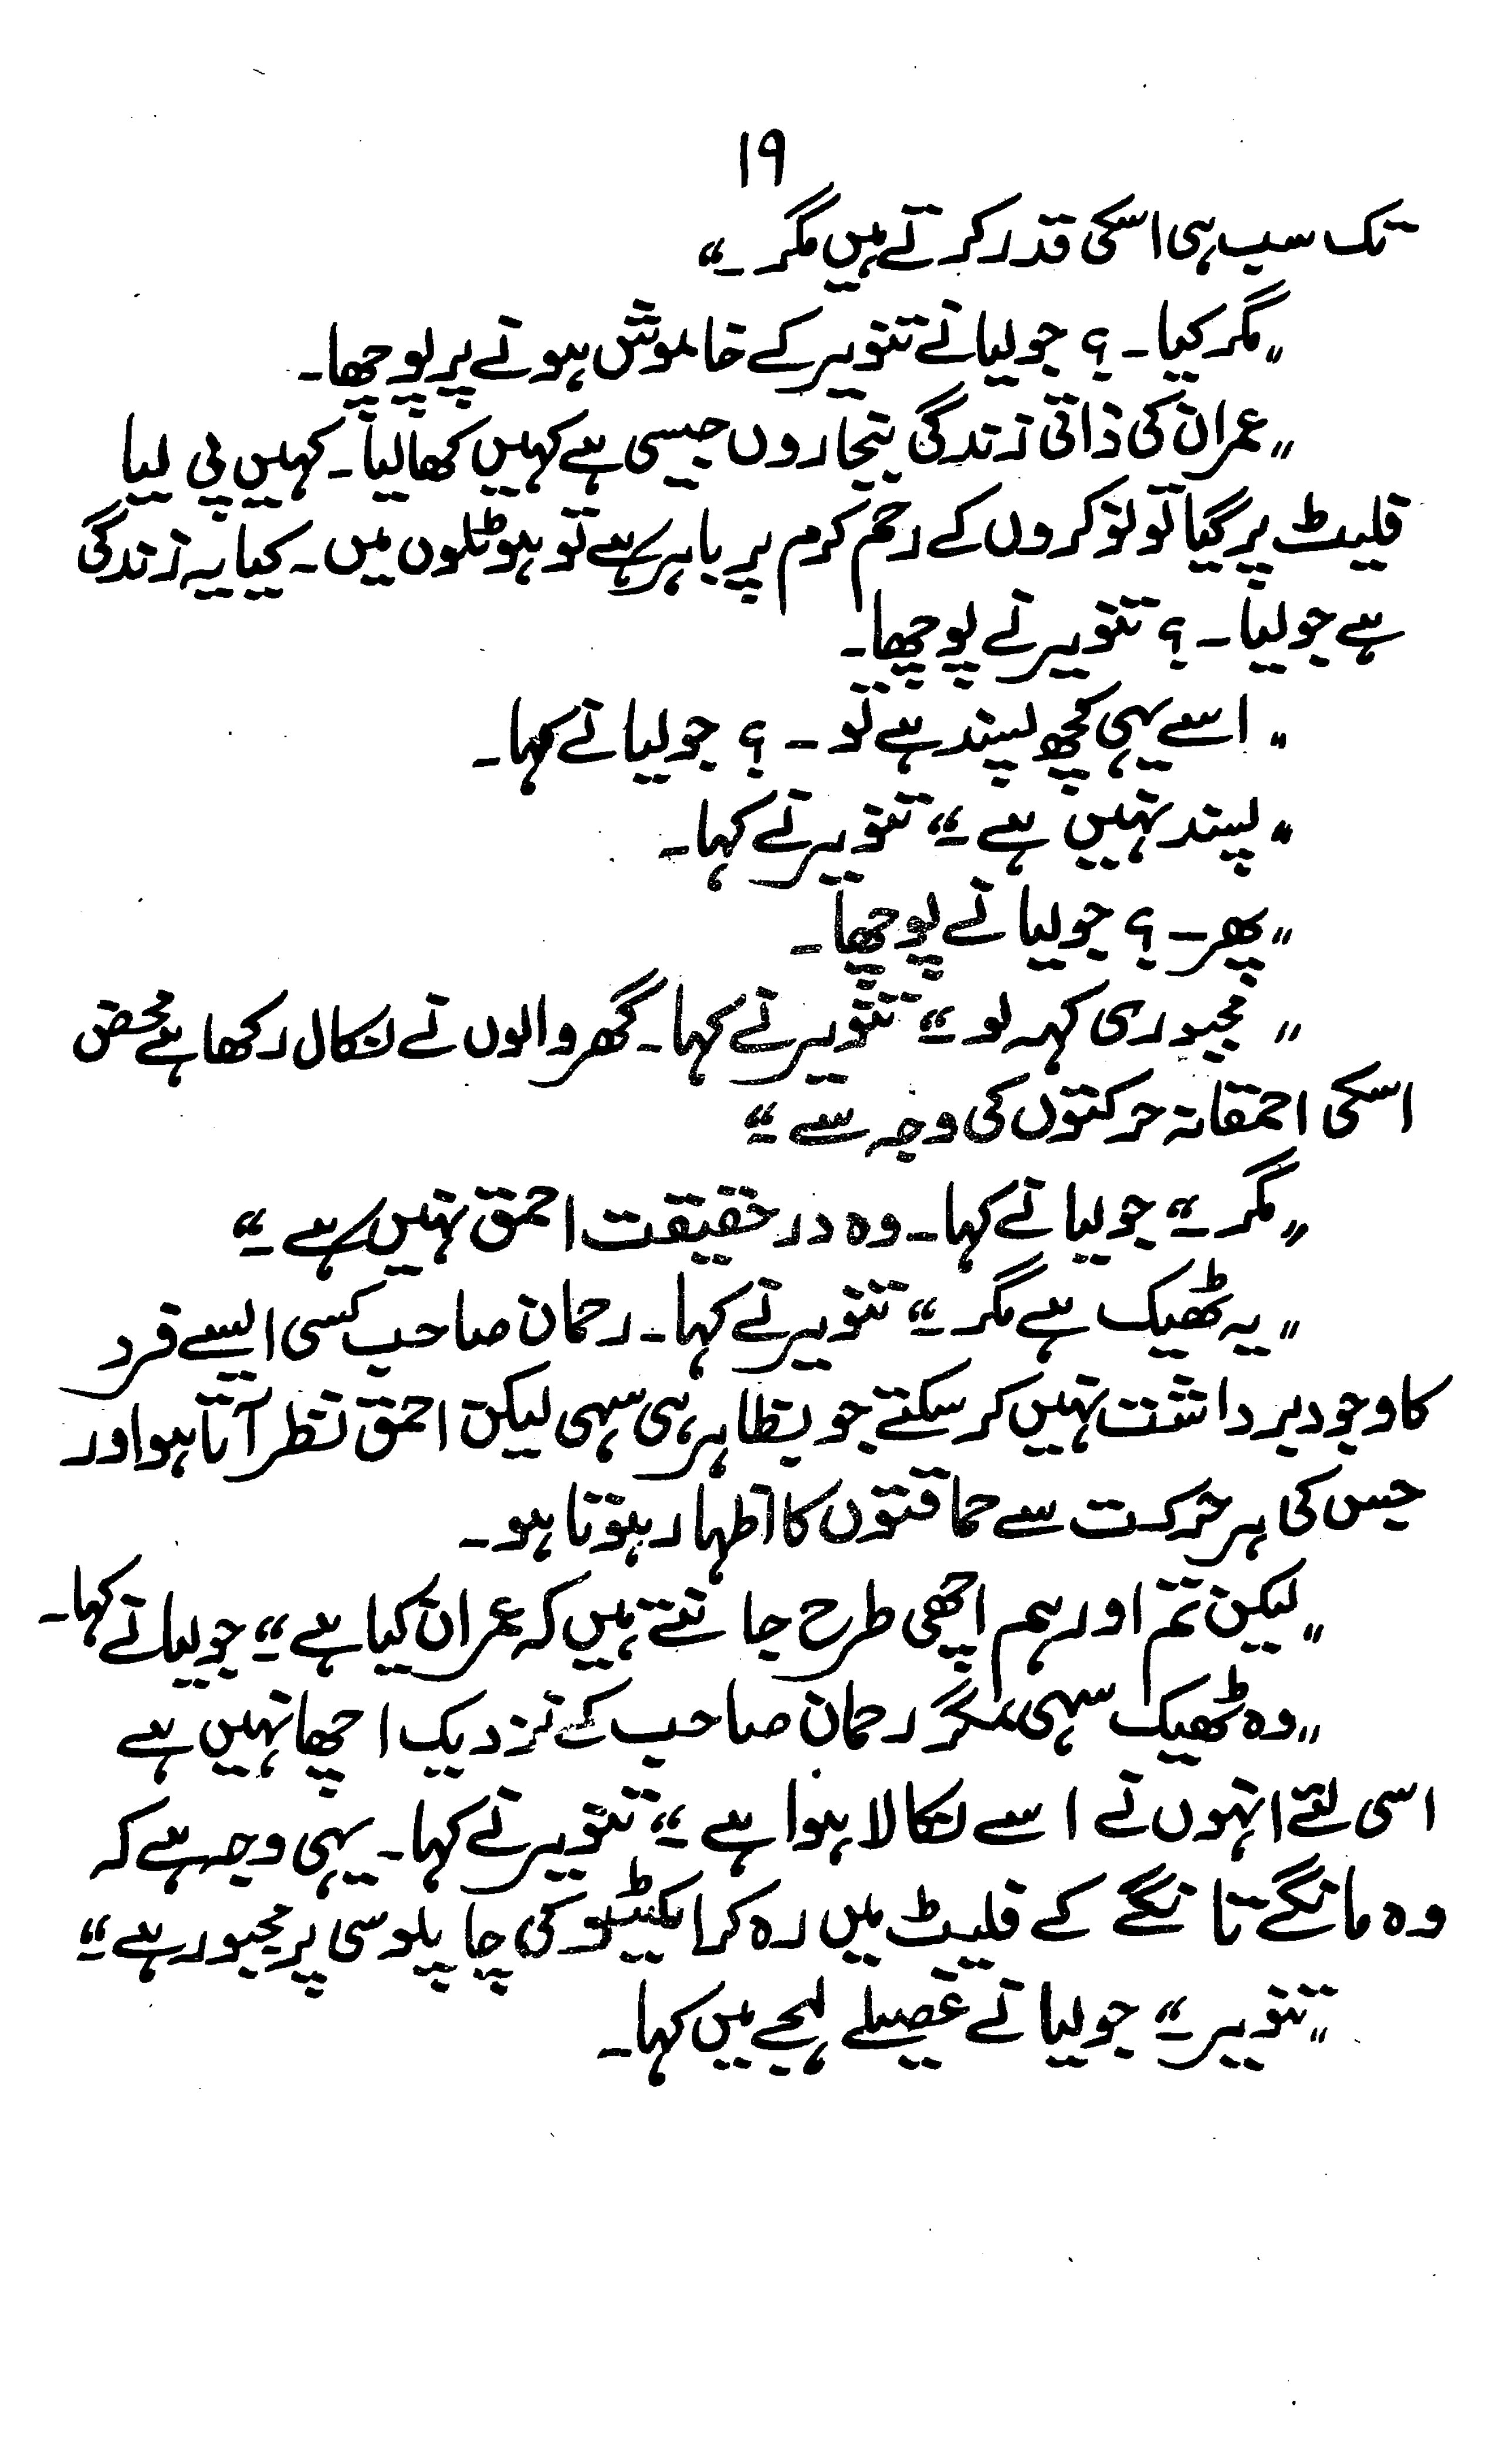 ۱۹
تک سب ہی اسکی قدر کرتے ہیں مگر ۔“
”مگر کیا ۔ ؟ جولیا نے تنویر کے خاموش ہونے پر پوچھا۔
”عمران کی ذاتی زندگی بنجاروں جیسی ہے کہیں کھا لیا۔ کہیں پی لیا
فلیٹ پر گیا تو نوکروں کے رحم کرم پر باہر ہے تو ہوٹلوں میں ۔ کیا یہ زندگی
ہے جولیا ۔ ؟ تنویر نے پوچھا۔
” اسے یہی کچھ پسند ہے تو ۔ ؟ جولیا نے کہا۔
”پسند نہیں ہے ۔“ تنویر نے کہا۔
”پھر ۔ ؟ جولیا نے پوچھا۔
” مجبوری کہہ لو ۔“ تنویر نے کہا۔ گھر والوں نے نکال رکھا ہے محض
اسکی احمقانہ حرکتوں کی وجہ سے ۔“
”مگر ۔“ جولیا نے کہا۔ وہ درحقیقت احمق نہیں ہے ۔“
”یہ ٹھیک ہے مگر ۔“ تنویر نے کہا۔ رحمان صاحب کسی ایسے فرد
کا وجود برداشت نہیں کر سکتے جو بظاہر ہی سہی لیکن احمق نظر آتا ہو اور
جس کی ہر حرکت سے حماقتوں کا اظہار ہوتا ہو۔
”لیکن تم اور ہم اچھی طرح جانتے ہیں کہ عمران کیا ہے ۔“ جولیا نے کہا۔
”وہ ٹھیک سہی، مگر رحمان صاحب کے نزدیک اچھا نہیں ہے
اسی لئے انہوں نے اسے نکالا ہوا ہے ۔“ تنویر نے کہا۔ یہی وجہ ہے کہ
وہ مانگے تانگے کے فلیٹ میں رہ کر ایکسٹو کی چاپلوسی پر مجبور ہے ۔“
”تنویر ۔“ جولیا نے غصیلے لہجے میں کہا۔